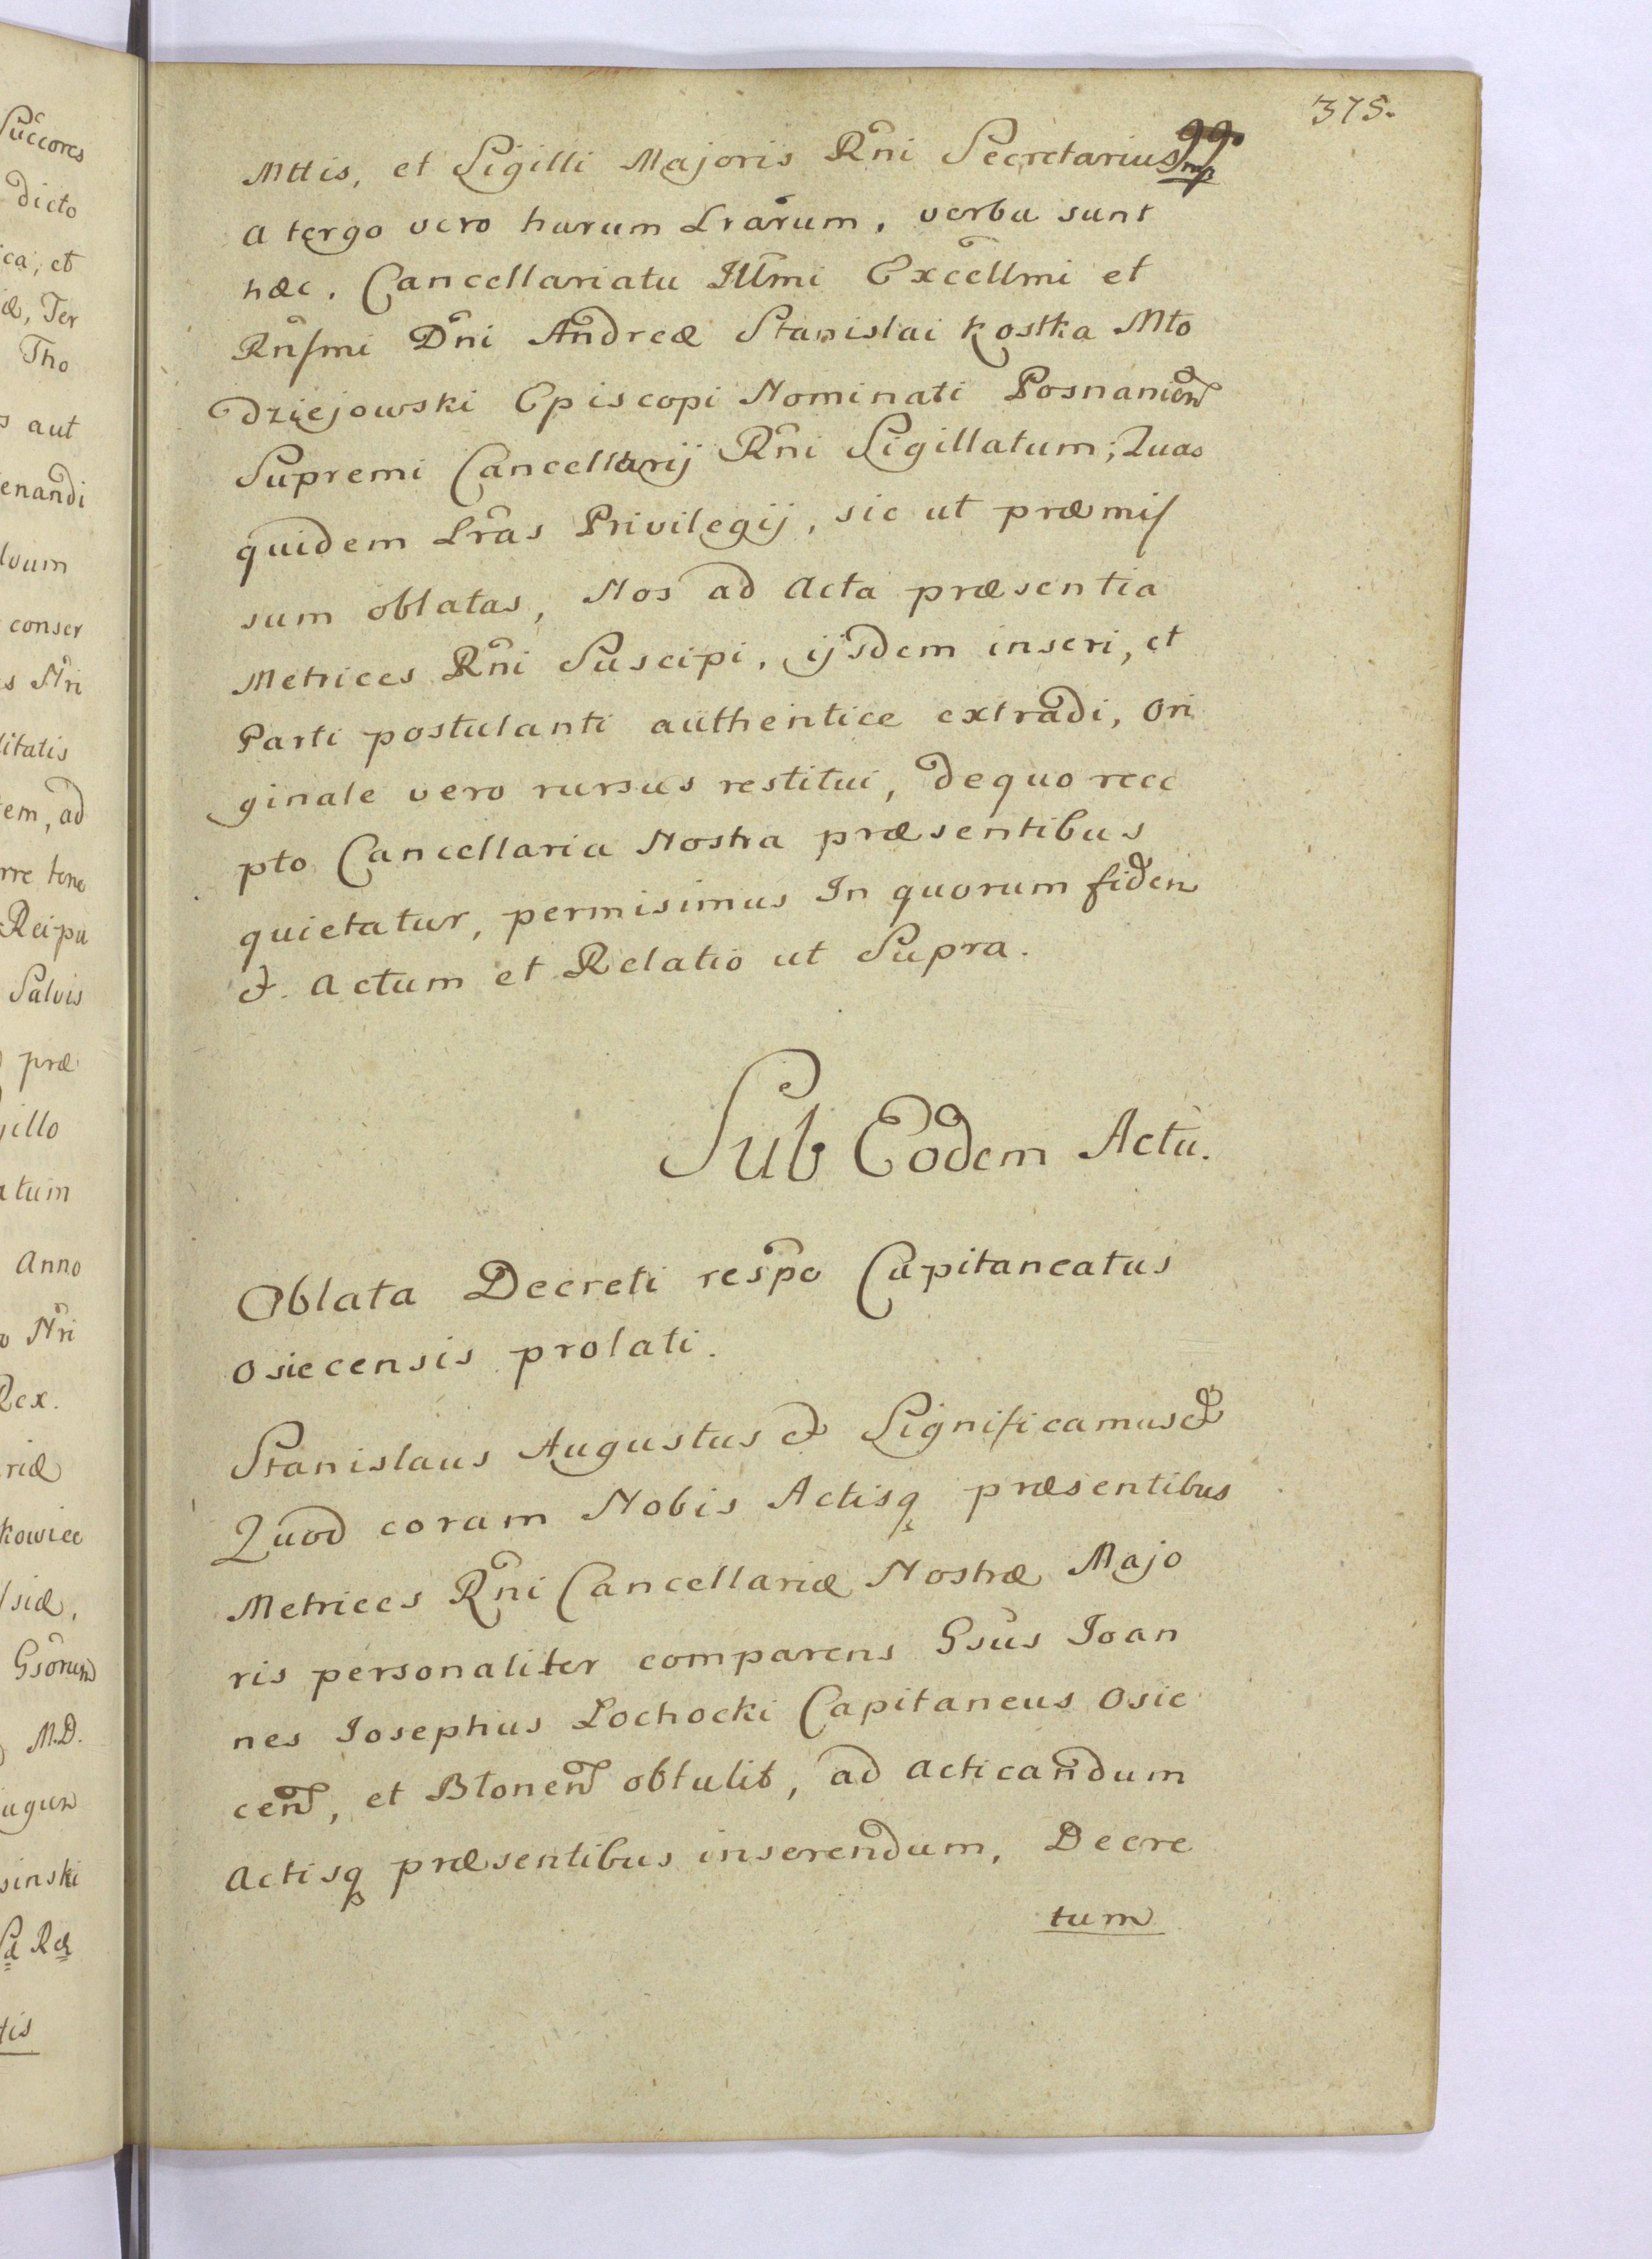 375.
Mttis, et Sigilli Majoris Rñi Secretarius mp
a tergo vero harum Lrarum, verba sunt
hæc. Cancellariatu Illmi Excellmi et
Rnſmi Dñi Andreæ Stanislai Kostka Mło
dziejowski Episcopi Nominati Posnanien
Supremi Cancellarij Rñi Sigillatum; Quas
quidem Lras Privilegij, sic ut præmiſ
sum oblatas, Nos ad Acta præsentia
Metrices Rñi Suscipi, ijsdem inseri, et
Parti postulanti authentice extradi, Ori
ginale vero rursus restitui, de quo rece
pto Cancellaria Nostra præsentibus
quietatur, permisimus In quorum fidem
&. Actum et Relatio ut Supra.
Sub Eodem Actu.
Oblata Decreti respo Capitaneatus
Osiecensis prolati.
Stanislaus Augustus & Significamus &
Quod coram Nobis Actisq præsentibus
Metrices Rñi Cancellariæ Nostræ Majo
ris personaliter comparens Gsus Joan
nes Josephus Łochocki Capitaneus Osie
cen, et Błonen obtulit, ad acticandum
Actisq præsentibus inserendum, Decre
tum
Succores
dicto
ca, et
æ, Ter
Tho
aut
enandi
lvum
conser
s Nri
litatis
em, ad
rre tene
Reipu
Salvis
præ
illo
atum
Anno
Nri
Rex.
riæ
kowiec
ſiæ,
Gsorum
M.D.
sinski
tis